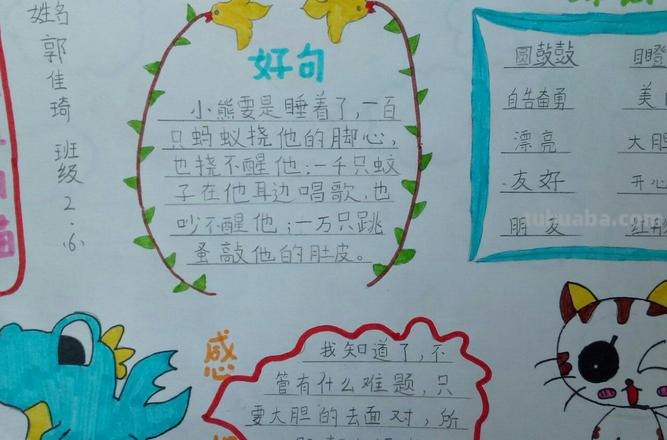 姓名
郭佳琦
班级2.6
好句
小熊要是睡着了,一百
只蚂蚁挠他的脚心,
也挠不醒他;一千只蚊
子在他耳边唱歌,也
吵不醒他;一万只跳
蚤敲他的肚皮。
圆鼓鼓
自告奋勇
美
漂亮
大胆
友好
开心
朋友
tuhuaba.com
感
我知道了,不
管有什么难题,只
要大胆的去面对,所